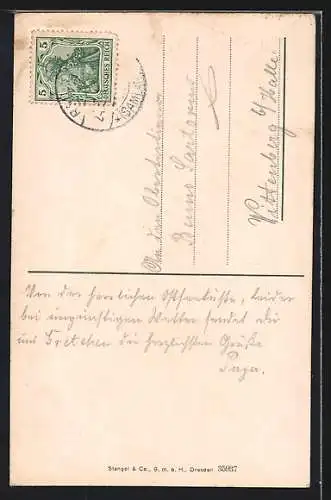 5 DEUTSCHES REICH 5
(SAML
An den Obertertianer
Benno
Wittenberg b/Halle.
Von der herrlichen Ostseeküste, leider
bei ungünstigem Wetter sendet dir
und Gretchen die herzlichsten Grüße
Papa.
Stengel & Co., G. m. b. H., Dresden 35987